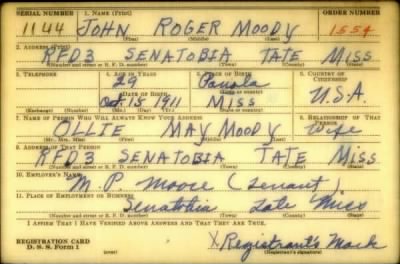 SERIAL NUMBER 1. NAME (Print) ORDER NUMBER
1144 JOHN ROGER MOODY 1554
(First) (Middle) (Last)
2. ADDRESS (Print)
RFD3 SENATOBIA TATE MISS
(Number and street or R. F. D. number) (Town) (County) (State)
3. TELEPHONE 4. AGE IN YEARS 5. PLACE OF BIRTH 6. COUNTRY OF CITIZENSHIP
29 Panola
DATE OF BIRTH (Town or county)
Oct. 15 1911 Miss U.S.A.
(Exchange) (Number) (Mo.) (Day) (Yr.) (State or country)
7. NAME OF PERSON WHO WILL ALWAYS KNOW YOUR ADDRESS 8. RELATIONSHIP OF THAT PERSON
OLLIE MAY MOODY Wife
(Mr., Mrs., Miss) (First) (Middle) (Last)
9. ADDRESS OF THAT PERSON
RFD3 SENATOBIA TATE MISS
(Number and street or R. F. D. number) (Town) (County) (State)
10. EMPLOYER'S NAME
M. P. Moore (Tenant)
11. PLACE OF EMPLOYMENT OR BUSINESS
Senatobia Tate Miss
(Number and street or R. F. D. number) (Town) (County) (State)
I AFFIRM THAT I HAVE VERIFIED ABOVE ANSWERS AND THAT THEY ARE TRUE.
REGISTRATION CARD
D. S. S. Form 1 X Registrant's Mark